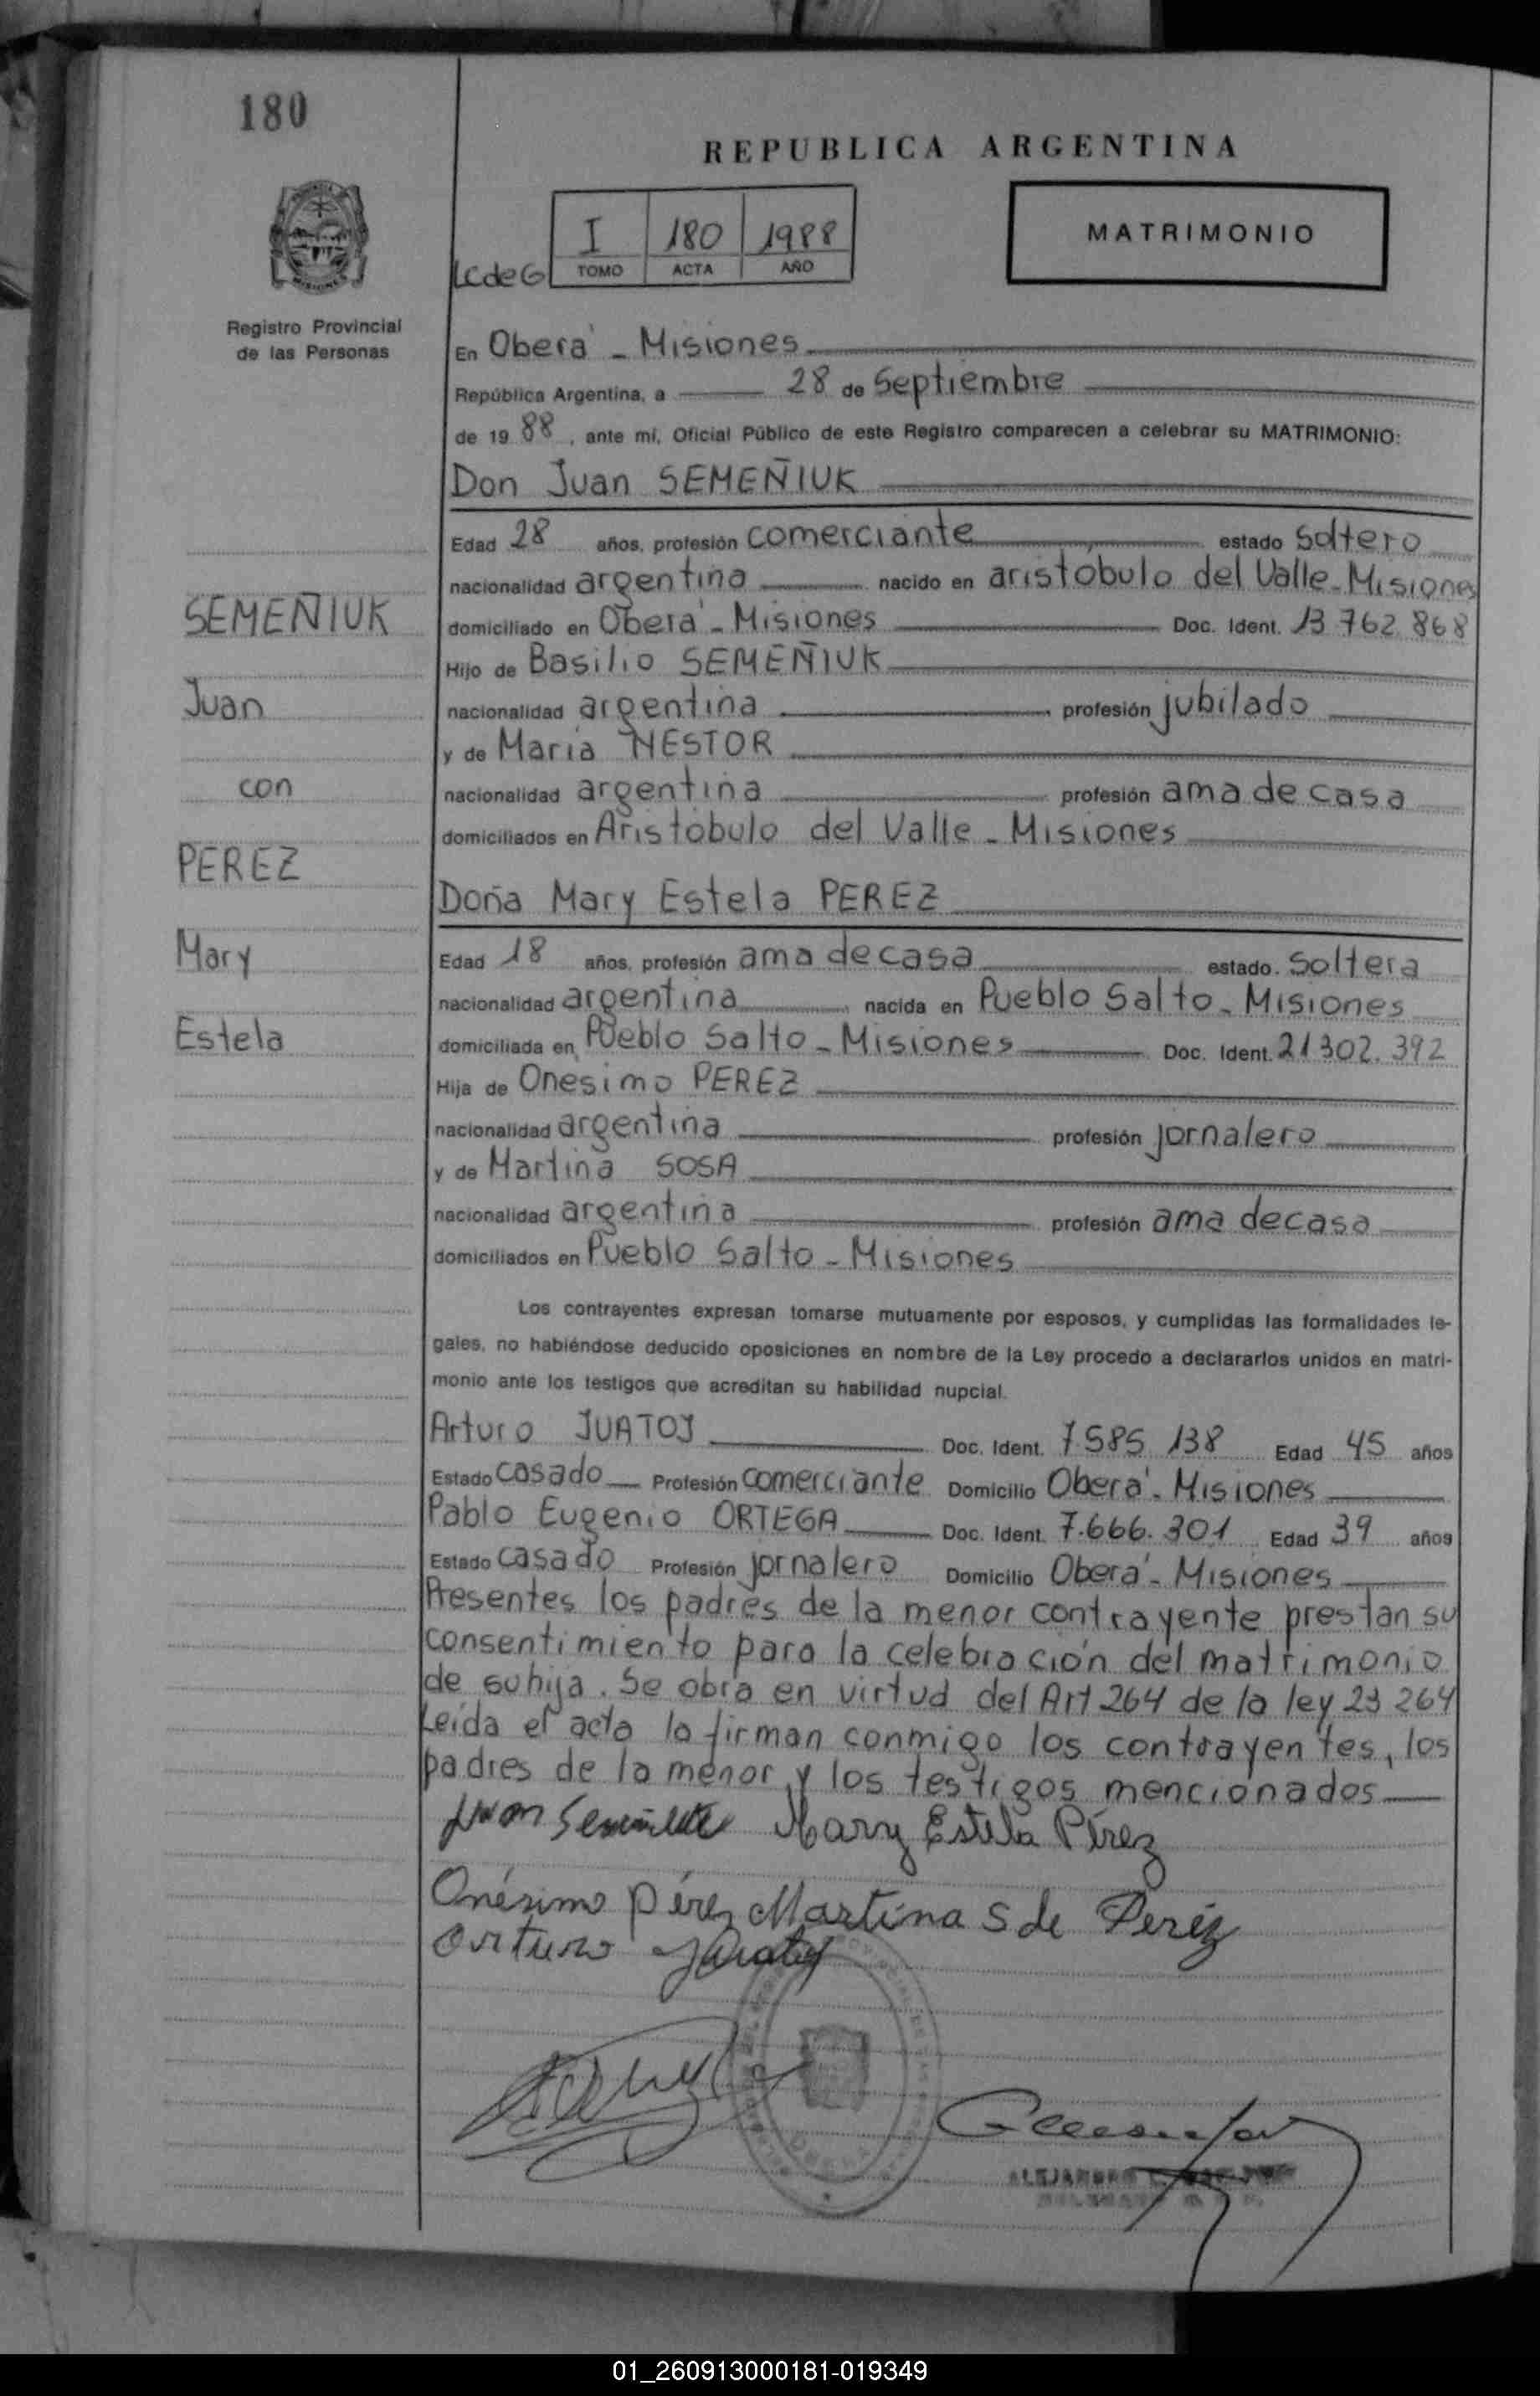 180
REPUBLICA ARGENTINA
MATRIMONIO
I 180 1988
LC de G TOMO ACTA AÑO
MISIONES
Registro Provincial
de las Personas
En Oberá - Misiones
República Argentina, a 28 de Septiembre
de 19 88, ante mí, Oficial Público de este Registro comparecen a celebrar su MATRIMONIO:
Don Juan SEMEÑIUK
Edad 28 años, profesión comerciante estado soltero
nacionalidad argentina nacido en aristóbulo del Valle - Misiones
SEMEÑIUK
domiciliado en Oberá - Misiones Doc. Ident. 13 762 868
Hijo de Basilio SEMEÑIUK
Juan
nacionalidad argentina profesión jubilado
y de Maria NESTOR
con
nacionalidad argentina profesión ama de casa
domiciliados en Aristóbulo del Valle - Misiones
PEREZ
Doña Mary Estela PEREZ
Mary
Edad 18 años, profesión ama de casa estado soltera
nacionalidad argentina nacida en Pueblo Salto - Misiones
Estela
domiciliada en Pueblo Salto - Misiones Doc. Ident. 21 302. 392
Hija de Onesimo PEREZ
nacionalidad argentina profesión jornalero
y de Martina SOSA
nacionalidad argentina profesión ama de casa
domiciliados en Pueblo Salto - Misiones
Los contrayentes expresan tomarse mutuamente por esposos, y cumplidas las formalidades le-
gales, no habiéndose deducido oposiciones en nombre de la Ley procedo a declararlos unidos en matri-
monio ante los testigos que acreditan su habilidad nupcial.
Arturo JUATOJ Doc. Ident. 7.585 138 Edad 45 años
Estado casado Profesión comerciante Domicilio Oberá - Misiones
Pablo Eugenio ORTEGA Doc. Ident. 7.666.301 Edad 39 años
Estado casado Profesión jornalero Domicilio Oberá - Misiones
Presentes los padres de la menor contrayente prestan su
consentimiento para la celebración del matrimonio
de su hija. Se obra en virtud del Art 264 de la ley 23 264
Leída el acta la firman conmigo los contrayentes, los
padres de la menor y los testigos mencionados
Juan Semeñiuk Mary Estela Pérez
Onésimo Pérez Martina S de Peréz
Arturo
ALEJANDRO
01_260913000181-019349